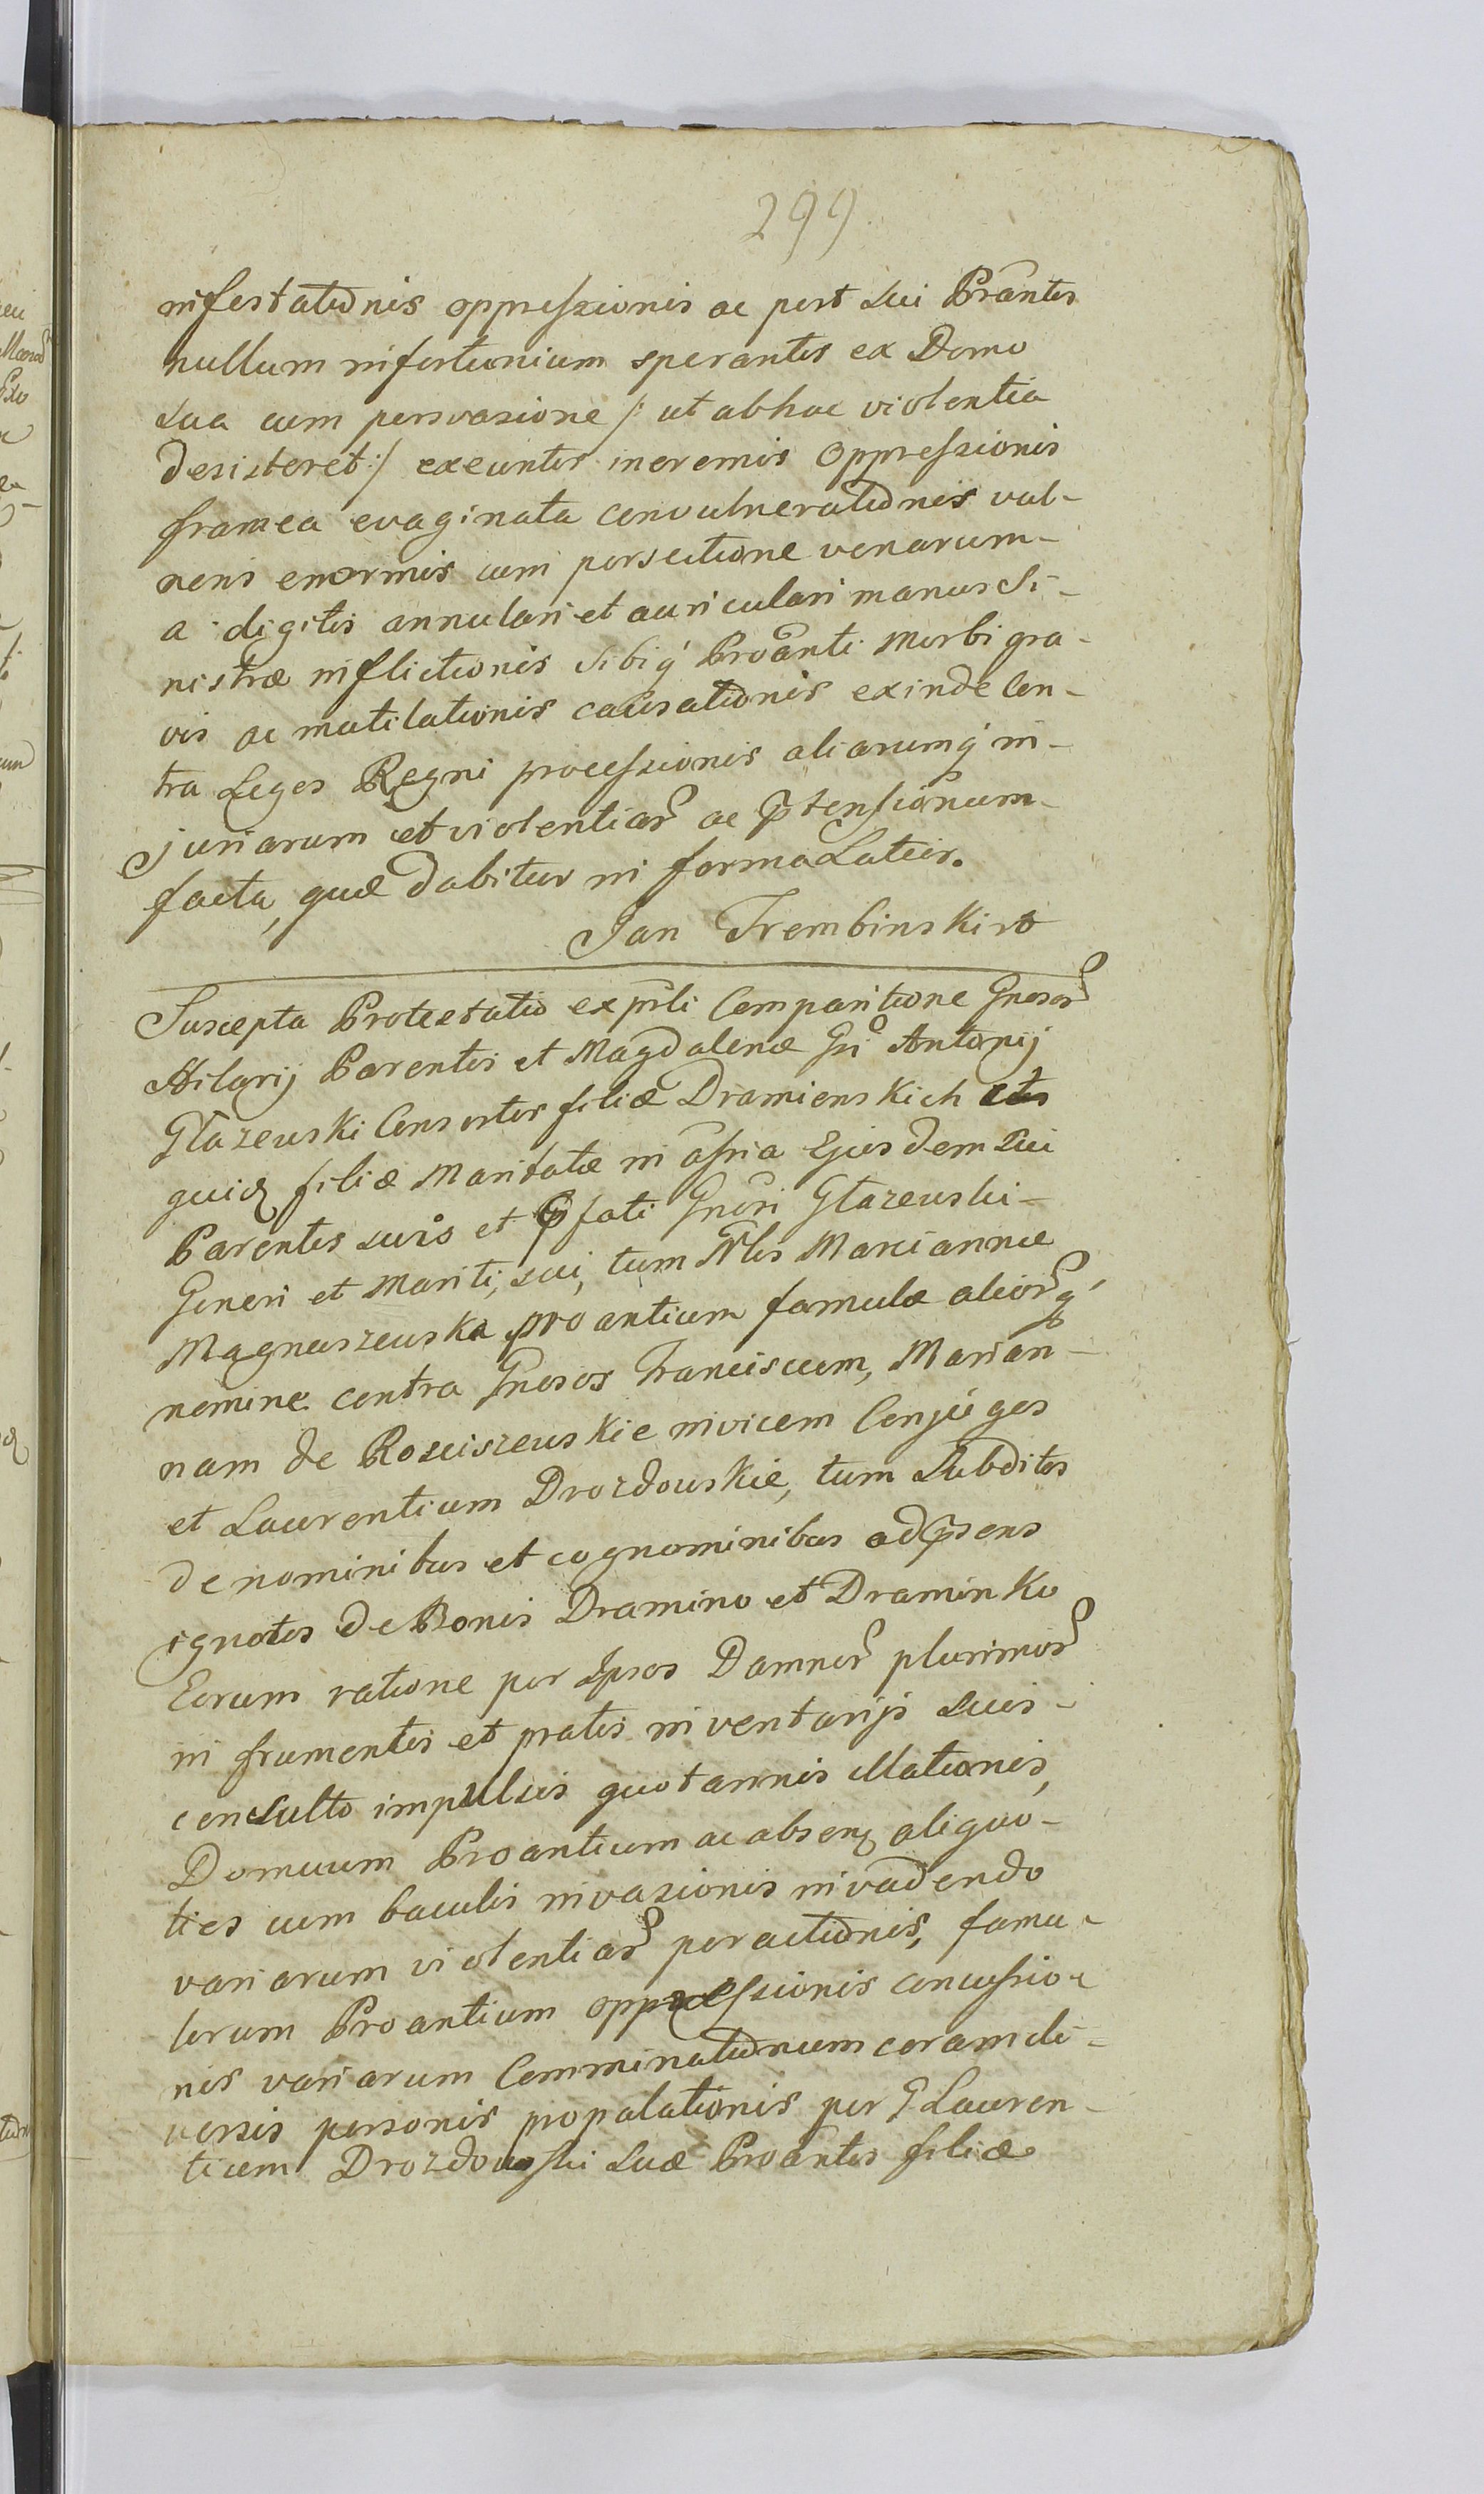 299
infestationis oppressionis ac post sui Proantis
nullum infortunium sperantis ex Domo
sua cum persvasione /: ut ab hac violentia
desisteret :/ exeuntis inermis oppressionis
framea evaginata convulnerationis vul-
neris enormis cum persectione venarum
a digitis annulari et auriculari manus Si-
nistræ inflictionis sibiq́ Proanti Morbi gra-
vis ac mutilationis causationis exinde Con-
tra Leges Regni processionis aliarumq́ in-
juriarum et violentiar ac p̃tensionum
facta, quæ dabitur in forma Latior.
Jan Trembinski
Suscepta Protestatio ex p̃sñli Comparitione Gñosor
Hilarij Parentis et Magdalenæ Gsi Antonij
Głazewski Consortis filiæ Dramienskich
quidẽ filiæ Maritatæ in ãssña Ejusdem sui
Parentis suis et p̃fati Gñosi Głazewski
Generi et Mariti sui, tum Nlis Mariannæ
Magnuszewska Proantium famulæ aliorq́
nomine contra Gñosos Franciscum, Marian-
nam de Rosciszewskie invicem Conjuges
et Laurentium Drozdowskie, tum Subditos
de nominibus et cognominibus ad p̃sens
ignotos de Bonis Dramino et Draminko
Eorum ratione per Ipsos Damnor plurimor
in frumentis et pratis inventarijs suis
consulto impulsis quotannis illationis,
Domuum Proantium ac absenq́ aliquo-
ties cum baculis invasionis invadendo
variarum violentiar peractionis, famu-
lorum Proantium oppressionis concussio-
nis variarum Comminationum coram di-
versis personis propalationis per G Lauren-
tium Drozdowski suæ Proantis filiæ